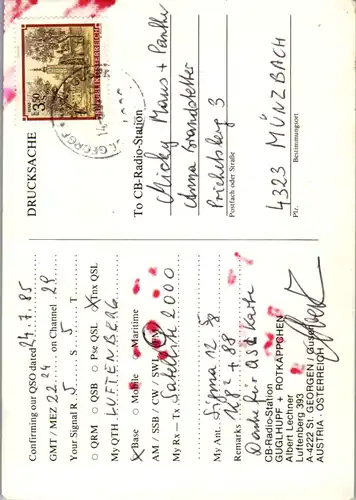 DRUCKSACHE
To CB-Radio-Station
Micky Maus + Panther
Anna Brandstetter
Prichitsberg 3
Postfach oder Straße
4323 MÜNZBACH
Plz. Bestimmungsort
3.50
REPUBLIK ÖSTERREICH
ST. GEORGEN
Confirming our QSO dated 24.7.85
GMT / MEZ 22.24 on Channel 29
Your Signal R 5 S 5 T
○ QRM ○ QSB ○ Pse QSL ○ Tnx QSL
My QTH LUFTENBERG
○ Base ○ Mobile ○ Maritime
AM / SSB / CW / SW
My Rx – Tx Satellite 2000
My Ant. Sigma 12 5/8
Remarks 73 + 88
Danke für QSL Karte
CB-Radio-Station
GUGLHUPF + ROTKÄPPCHEN
Albert Lechner
Luftenberg 393
A-4222 St. GEORGEN / Gusen
AUSTRIA - ÖSTERREICH